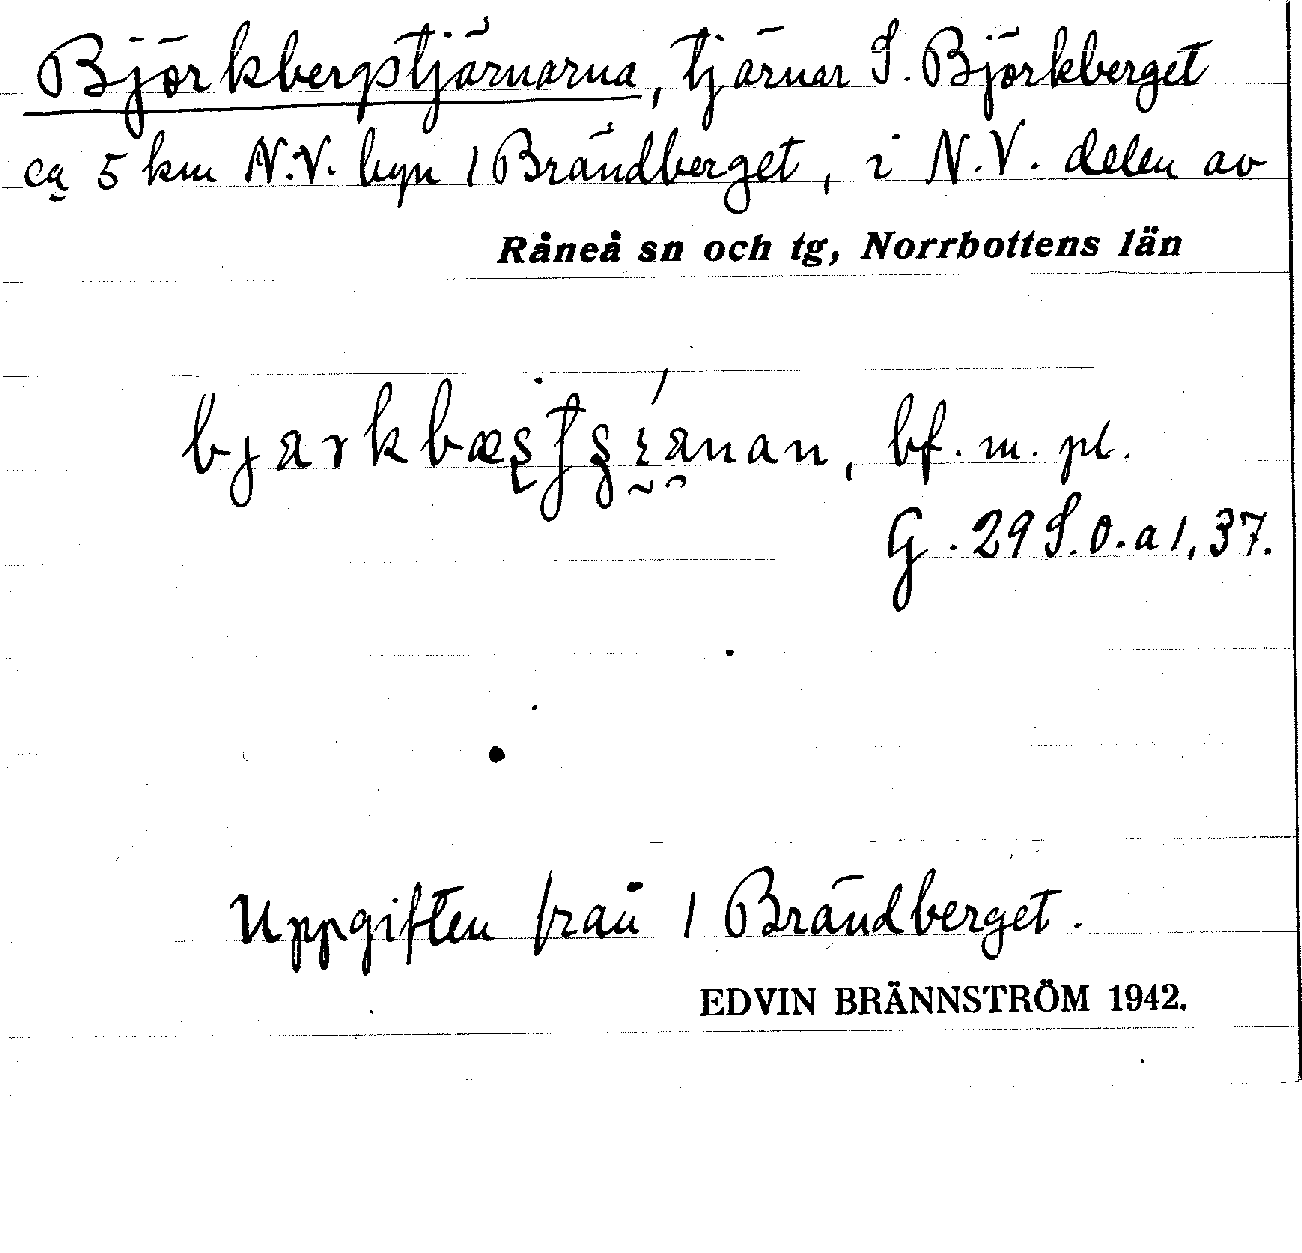 Björkbergstjärnarna, tjärnar S. Björkberget
ca 5 km N.V. byn 1 Brändberget, i N.V. delen av
Råneå sn och tg, Norrbottens län
bf. m. pl.
G. 29 S.O. a 1, 37.
Uppgiften från 1 Brändberget.
EDVIN BRÄNNSTRÖM 1942.